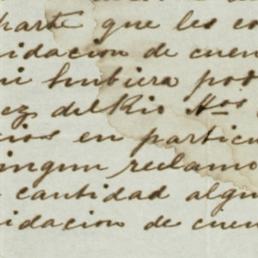 parte que les co
idacion de cuen
ni hubiera pod
ez del Rio Hos
cios en particu
ingun reclamo
cantidad algu
idacion de cuen